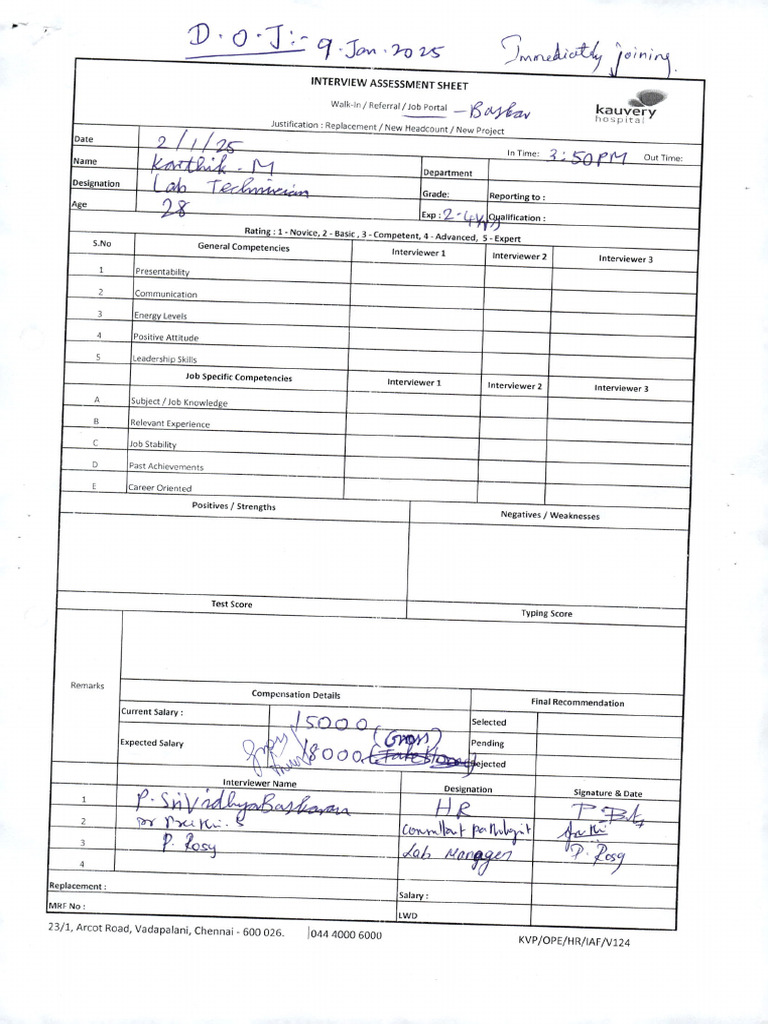 D.O.J:- 9.Jan.2025 Immediately joining.
INTERVIEW ASSESSMENT SHEET
Walk-in / Referral / Job Portal - Baskar
kauvery
hospital
Justification : Replacement / New Headcount / New Project
Date 2/1/25 In Time: 3:50PM Out Time:
Name Karthik - M Department
Designation Lab Technician Grade: Reporting to :
Age 28 Exp : 2-4yrs Qualification :
Rating : 1 - Novice, 2 - Basic , 3 - Competent, 4 - Advanced, 5 - Expert
S.No General Competencies Interviewer 1 Interviewer 2 Interviewer 3
1 Presentability
2 Communication
3 Energy Levels
4 Positive Attitude
5 Leadership Skills
Job Specific Competencies Interviewer 1 Interviewer 2 Interviewer 3
A Subject / Job Knowledge
B Relevant Experience
C Job Stability
D Past Achievements
E Career Oriented
Positives / Strengths Negatives / Weaknesses
Test Score Typing Score
Remarks
Compensation Details Final Recommendation
Current Salary : 15000 Selected
(Gross) Pending
Expected Salary 18000 Rejected
Interviewer Name Designation Signature & Date
1 P. SriVidhyaBaskaran HR
2 Dr Preethi. S Consultant pathologist
3 P. Rosy Lab Manager P. Rosy
4
Replacement : Salary :
MRF No : LWD
23/1, Arcot Road, Vadapalani, Chennai - 600 026. 044 4000 6000 KVP/OPE/HR/IAF/V124